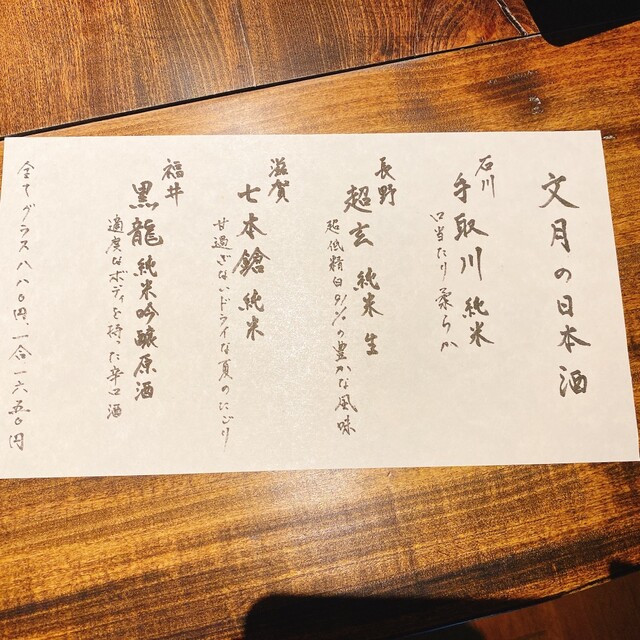 文月の日本酒
石川
手取川 純米
口当たり柔らか
長野
超玄 純米 生
超低精白91%の豊かな風味
滋賀
七本鎗 純米
甘過ぎないドライな夏のにごり
福井
黒龍 純米吟醸原酒
適度なボディを持た辛口酒
全てグラス八八〇円、一合一六五〇円